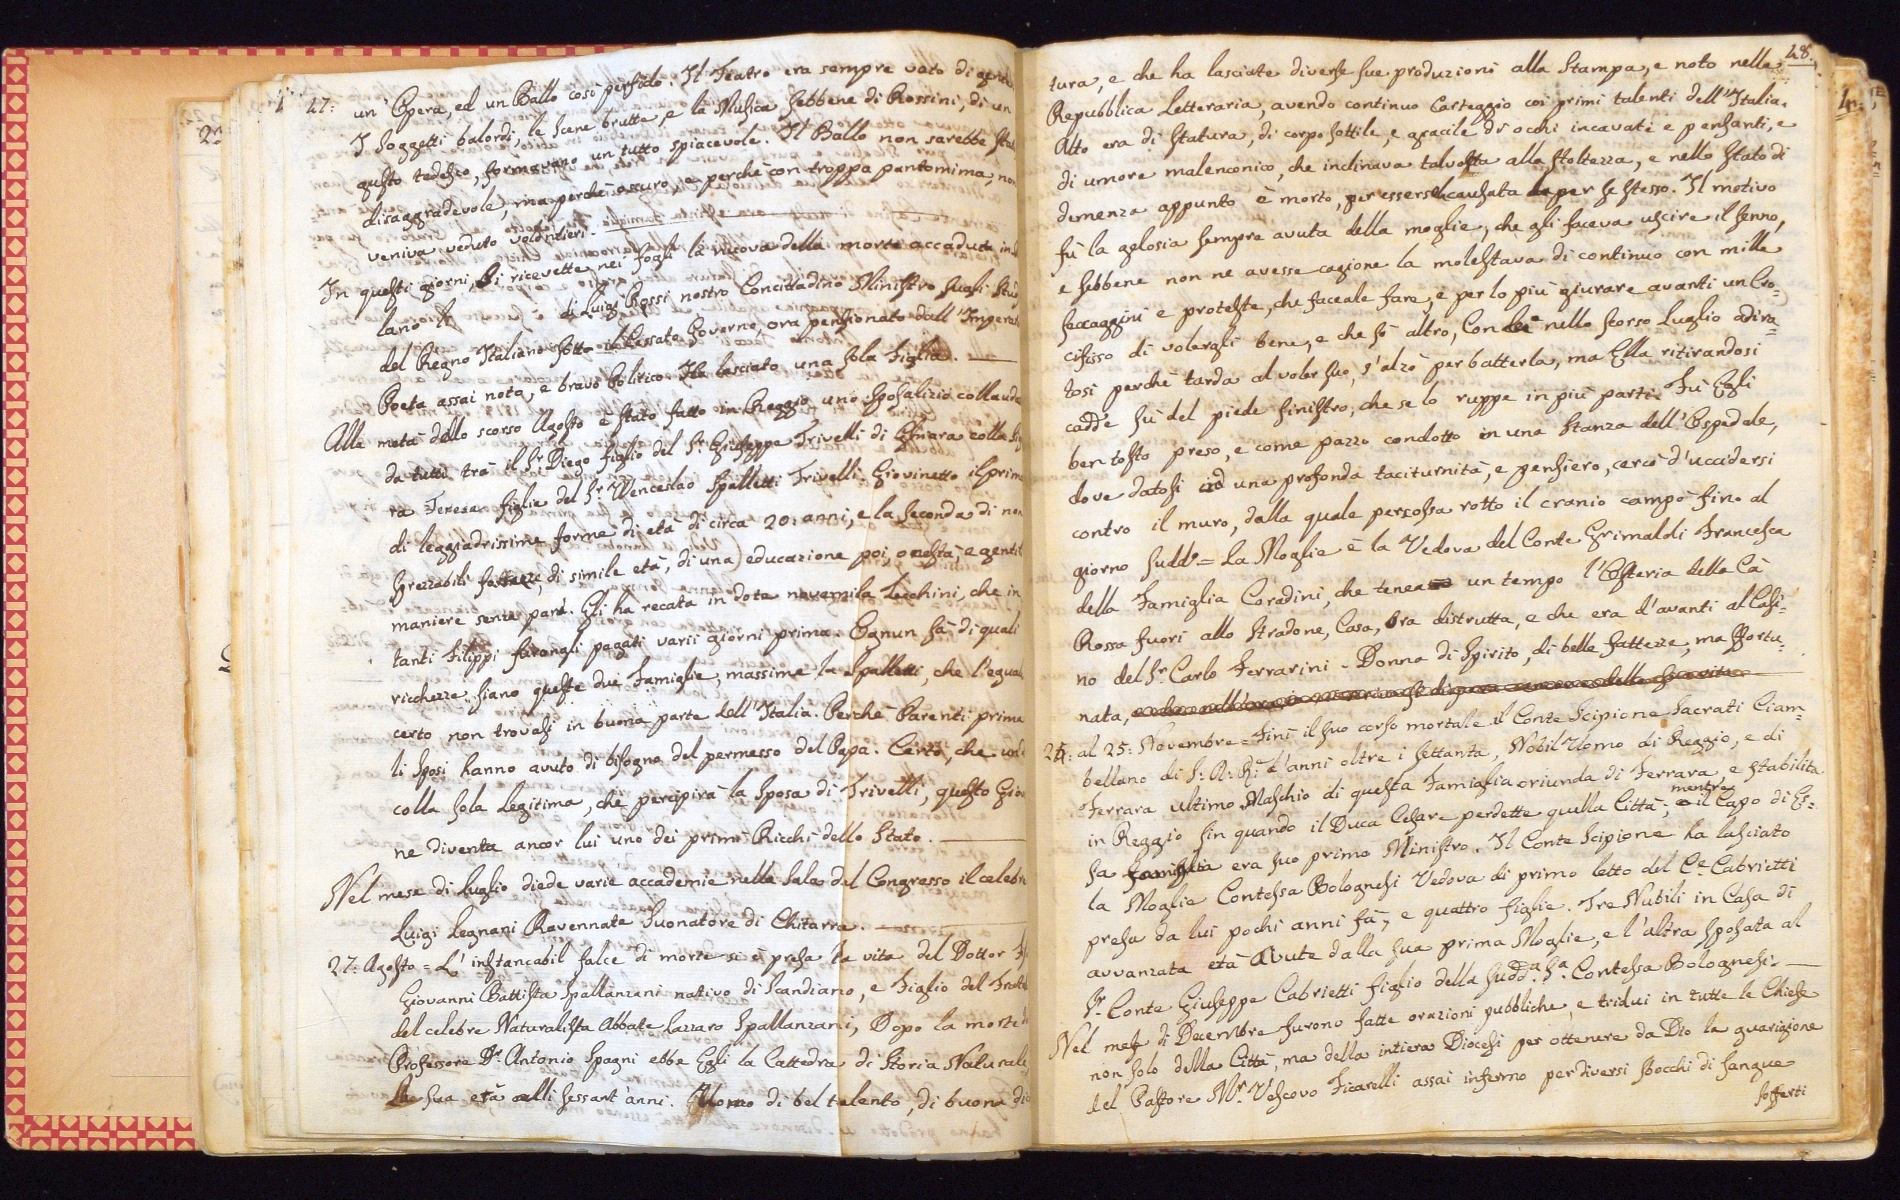 47:
un' Opera, ed un Ballo così perfido. Il Teatro era sempre voto di
I soggetti balordi, le scene brutte, e la Musica sebbene di Rossini, di un
gusto tedesco, formavano un tutto spiacevole. Il Ballo non sarebbe
disaggradevole, ma perchè oscuro, e perchè con troppa pantomima, non
veniva veduto volontieri.
In questi giorni si ricevette nei fogli la nuova della morte accaduta in
lano di Luigi Rossi nostro Concittadino Ministro sugli
del Regno Italiano sotto il cessato Governo, ora pensionato dall'
Poeta assai noto, e bravo Politico. Ha lasciato una sola figlia.
Alla metà dello scorso Agosto è stato fatto in Reggio uno Sposalizio
da tutti trà il Sr Diego figlio del Sr Giuseppe Trivelli di colla
ra Teresa figlia del Sr Wenceslao Spalletti Trivelli. Giovinetto il primo
di leggiadrissime forme di età di circa 20: anni, e la seconda di non
sprezzabili fattezze, di simile età, di una educazione poi, onestà, e
maniere senza pari. Gli ha recata in dote novemila Zecchini, che in
tanti Filippi furongli pagati varii giorni prima. Ognun sà di quali
ricchezze siano queste due Famiglie, massime la Spalletti, che
certo non trovasi in buona parte dell'Italia. Perchè Parenti prima
li Sposi hanno avuto di bisogno del permesso del Papa. Certo, che
colla sola Legitima, che percipirà la Sposa di Trivelli, questo
ne diventa ancor lui uno dei primi Ricchi dello Stato.
Nel mese di Luglio diede varie accademie nella Sala del Congresso il celebre
Luigi Legnani Ravennate Suonatore di Chitarra.
27: Agosto = L'instancabil falce di morte si è presa la vita del Dottor
Giovanni Battista Spallanzani nativo di Scandiano, e Figlio del
del celebre Naturalista Abbate Lazzaro Spallanzani, Dopo la morte
Professore Dr Antonio Spagni ebbe Egli la Cattedra di Storia Naturale
sua età alli sessant'anni. Uomo di bel talento, di buona
48.
tura, e che ha lasciate diverse sue produzioni alla Stampa, e noto nella
Repubblica Letteraria, avendo continuo Carteggio coi primi talenti dell'Italia.
Alto era di statura, di corpo sottile, e gracile di occhi incavati e pensanti, e
di umore malenconico, che inclinava talvolta alla stoltezza, e nello stato di
demenza appunto è morto, per essersela causata per se stesso. Il motivo
fù la gelosia sempre avuta della moglie, che gli faceva uscire il senno,
e sebbene non ne avesse cagione la molestava di continuo con mille
seccaggini e proteste, che faceale fare, e per lo più giurare avanti un Cro-
cifisso di volergli bene, e che sò altro, Con Lei nello scorso Luglio adira-
tosi perchè tarda al voler suo, s'alzò per batterla, ma Ella ritirandosi
cadde sù del piede sinistro, che se lo ruppe in più parti. Fù Egli
ben tosto preso, e come pazzo condotto in una Stanza dell'Ospedale,
dove datosi ad una profonda taciturnità, e pensiero, cercò d'uccidersi
contro il muro, dalla quale percossa rotto il cranio campò fino al
giorno sudd.º = La Moglie è la Vedova del Conte Grimaldi Francesca
della Famiglia Coradini, che tenea un tempo l'Osteria della Cà
Rossa fuori allo Stradone, Casa, Ora distrutta, e che era d'avanti al Casi-
no del Sr Carlo Ferrarini. Donna di Spirito, di belle fattezze, ma sfortu-
nata,
25: al 25: Novembre = Finì il suo corso mortale il Conte Scipione Sacrati Ciam-
bellano di S: A: R: d'anni oltre i settanta, Nobil Uomo di Reggio, e di
Ferrara ultimo Maschio di questa Famiglia oriunda di Ferrara, e stabilita
in Reggio sin quando il Duca Cesare perdette quella Città, mentre il Capo di Es-
sa era suo primo Ministro. Il Conte Scipione ha lasciato
la Moglie Contessa Bolognesi Vedova di primo letto del C.e Cabrietti
presa da lui pochi anni fà, e quattro figlie. Tre Nubili in Casa di
avvanzata età Avute dalla sua prima Moglie, e l'altra sposata al
Sr. Conte Giuseppe Cabrietti figlio della sudd.a S.a Contessa Bolognesi.
Nel mese di Decembre furono fatte orazioni pubbliche, e tridui in tutte le Chiese
non solo della Città, ma della intiera Diocesi per ottenere da Dio la guarigione
del Pastore M.r Vescovo Ficarelli assai infermo per diversi sbocchi di sangue
sofferti